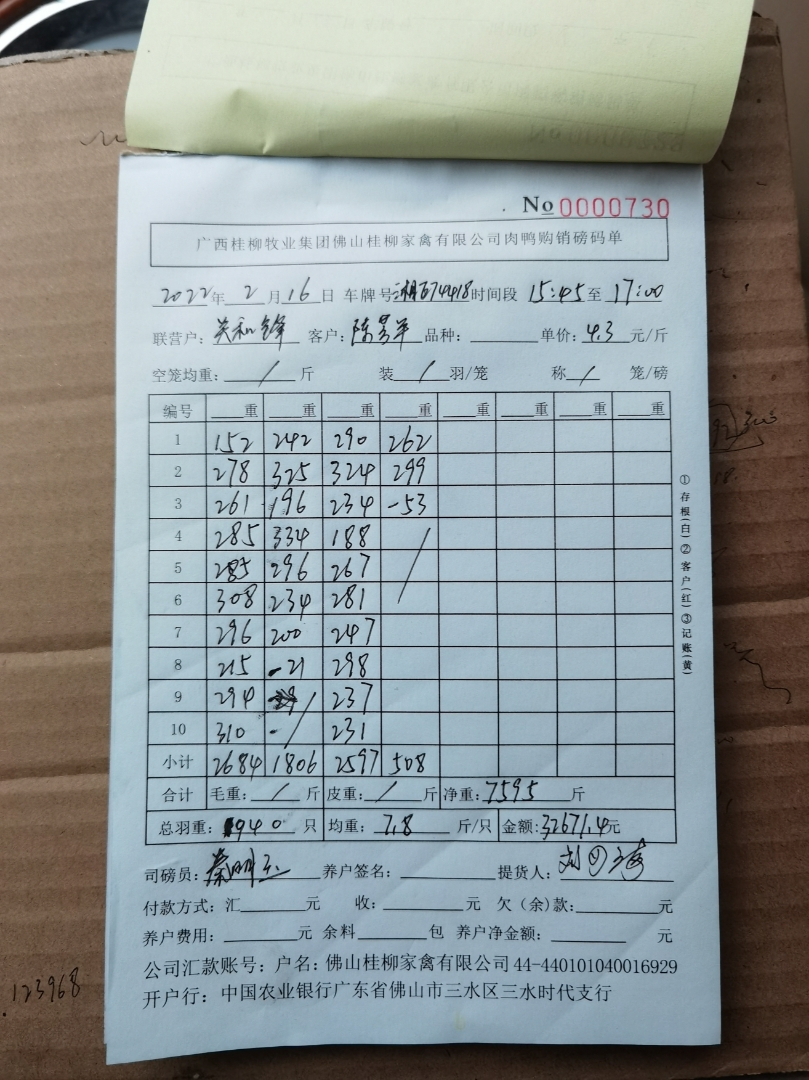 No 0000730
广西桂柳牧业集团佛山桂柳家禽有限公司肉鸭购销磅码单
2022年 2月16日 车牌号 时间段 15:45至 17:00
联营户: 客户: 品种: 单价:4.3元/斤
空笼均重: / 斤 装 / 羽/笼 称 / 笼/磅
编号 重 重 重 重 重 重 重 重
1 152 242 290 262
2 278 325 324 299
3 261 196 234 -53
4 285 334 188
5 285 296 267
6 308 234 281
7 296 200 247
8 215 -21 298
9 294 237
10 310 231
小计 2684 1806 2597 508
合计 毛重: / 斤 皮重: / 斤 净重:7595斤
总羽重: 940 只 均重: 7.8 斤/只 金额:32671.4元
司磅员: 养户签名: 提货人:
付款方式:汇 元 收: 元 欠(余)款: 元
养户费用: 元 余料 包 养户净金额: 元
公司汇款账号:户名:佛山桂柳家禽有限公司44-440101040016929
开户行:中国农业银行广东省佛山市三水区三水时代支行
①存根(白)②客户(红)③记账(黄)
123968